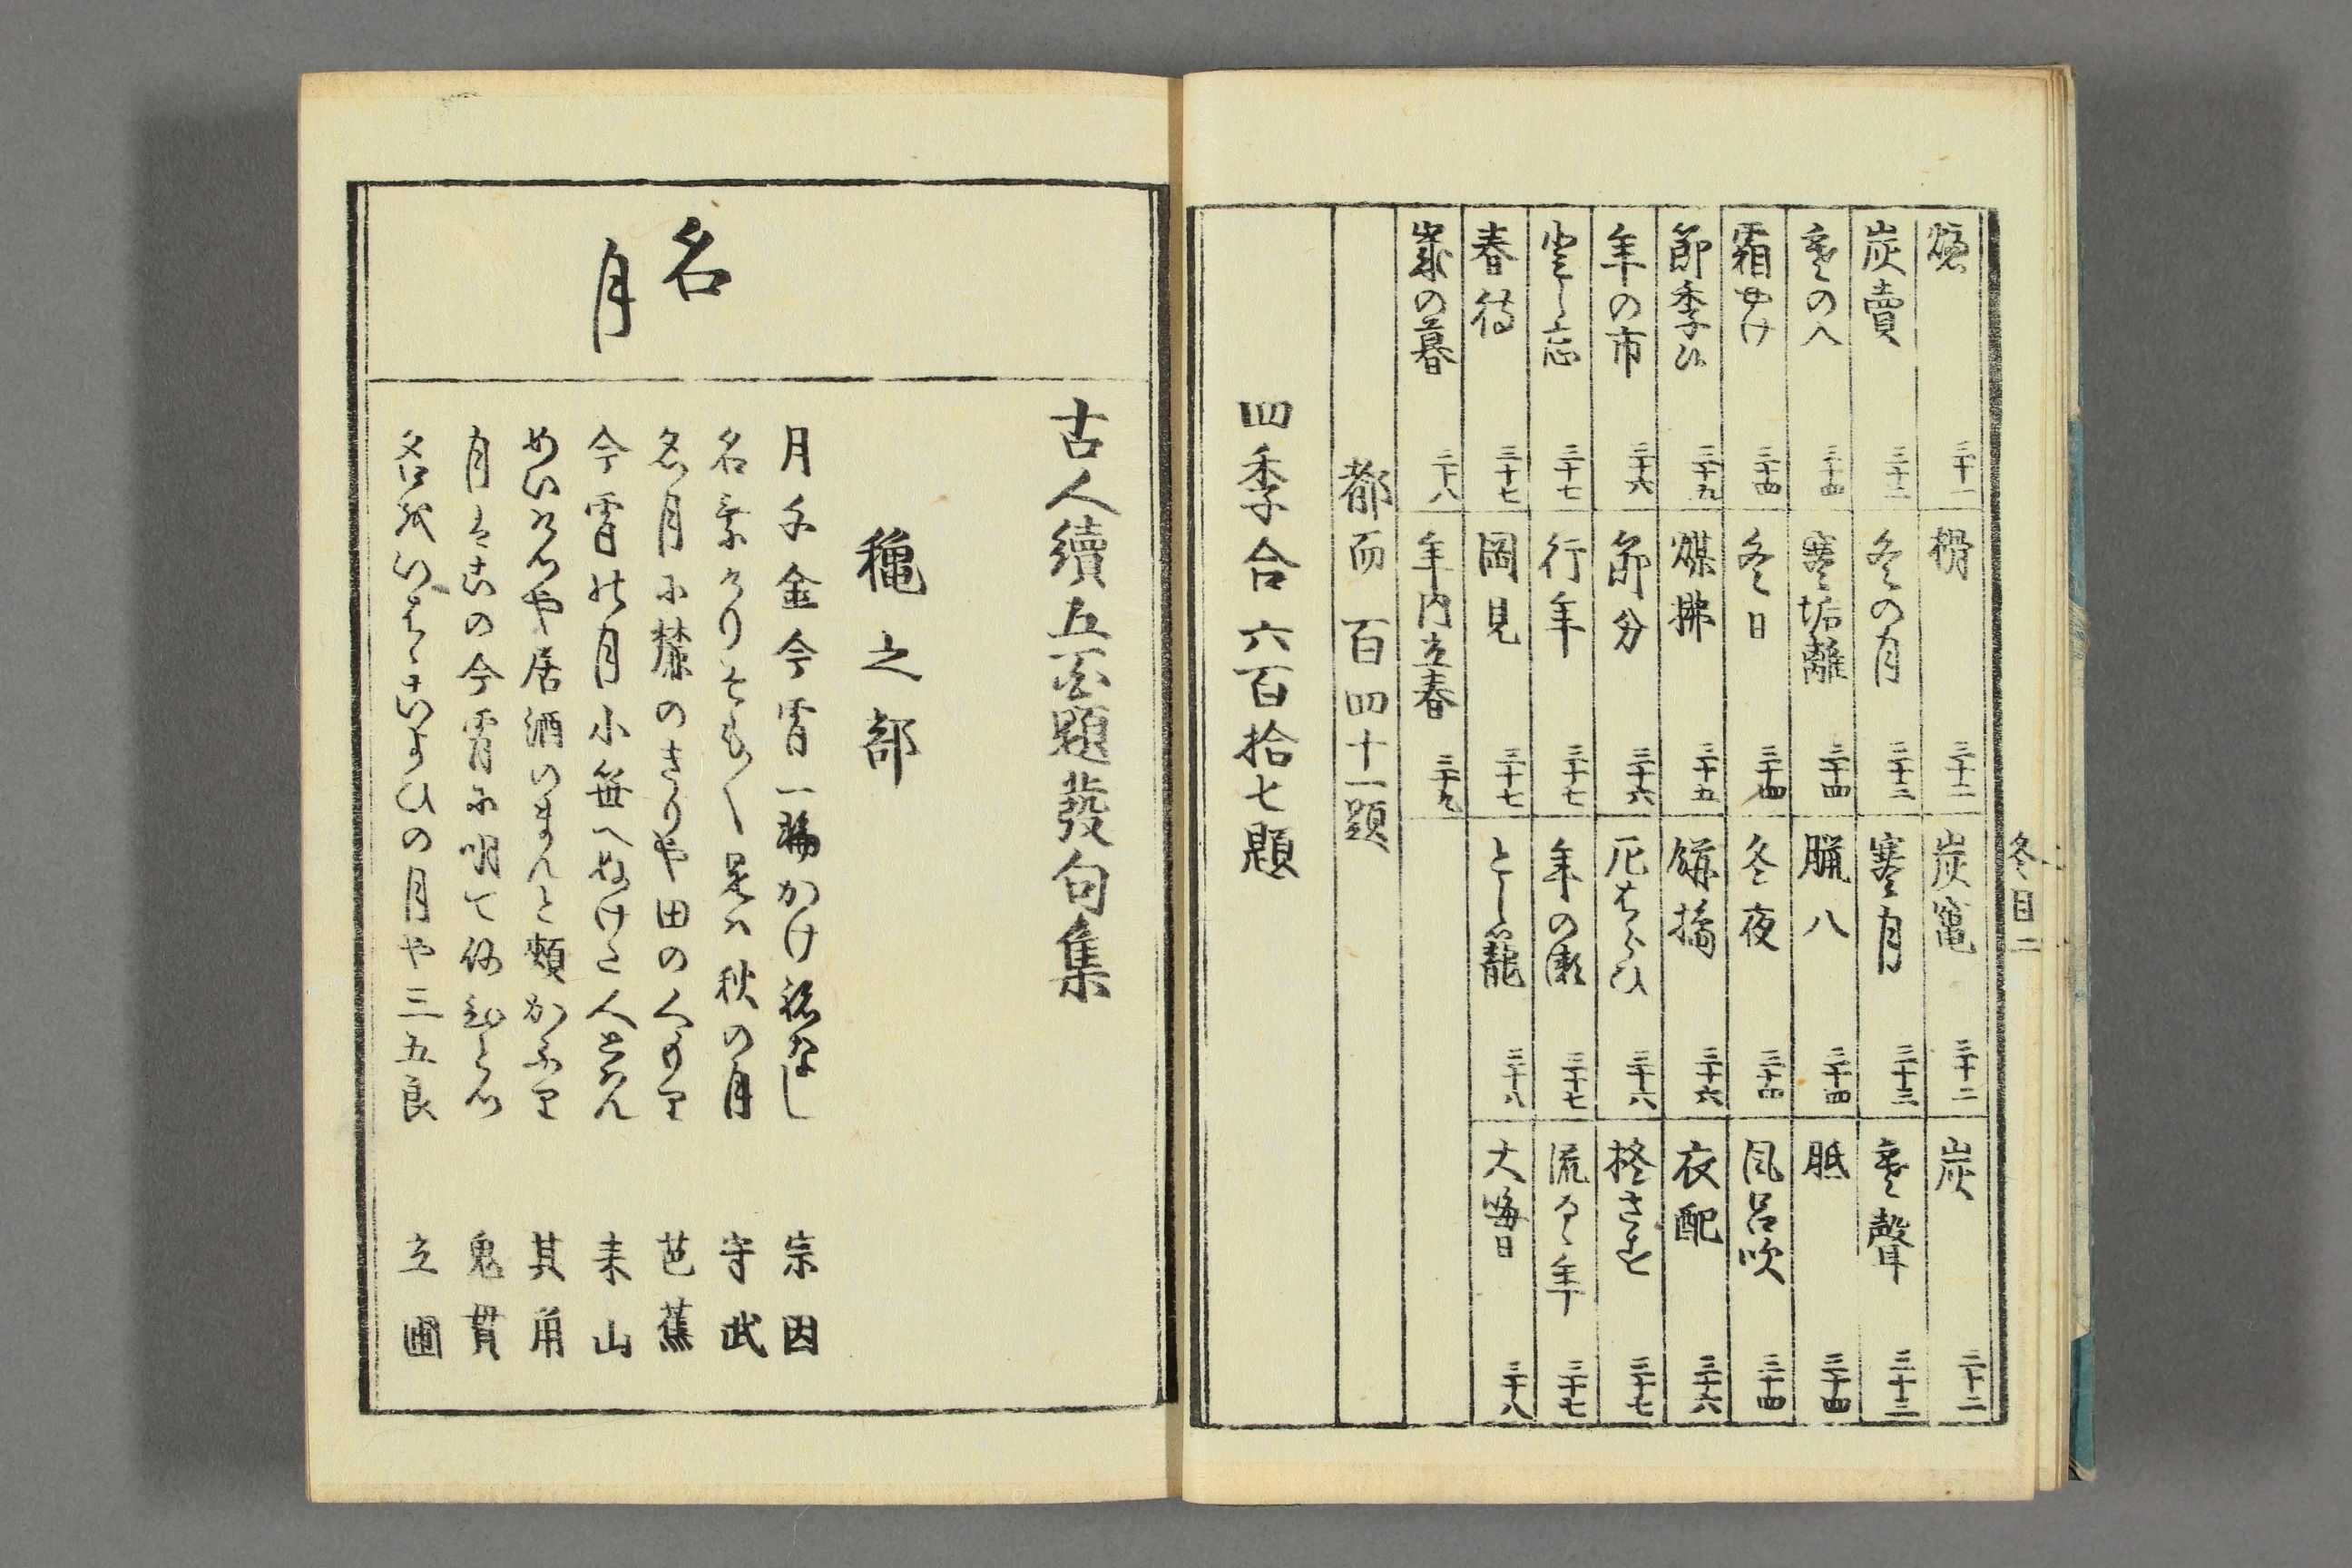 冬目二
三十一
榾 三十二
炭竈 三十二
炭 三十二
炭賣 三十二
冬の月 三十三
寒月 三十三
寒聲 三十三
三十四
寒垢離 三十四
臘八 三十四
胝 三十四
霜やけ 三十四
冬日 三十四
冬夜 三十四
風呂吹 三十四
節季候 三十五
煤拂 三十五
餅搗 三十六
衣配 三十六
年の市 三十六
節分 三十六
厄はらひ 三十六
柊さす 三十七
年忘 三十七
行年 三十七
年の瀬 三十七
流るゝ年 三十七
春待 三十七
岡見 三十七
とし籠 三十八
大晦日 三十八
歳の暮 三十八
年内立春 三十九
都而 百四十一題
四季合六百拾七題
古人續五百題發句集
穐之部
名月
月千金今宵一輪かけ祢なし 宗因
名 秋の月 守武
名月に麓のきりや田のくもり 芭蕉
今宵の月 人 来山
めいけつや居酒のまんと頬かふり 其角
月 の今宵 明て 鬼貫
こよひの月や三五良 立圃